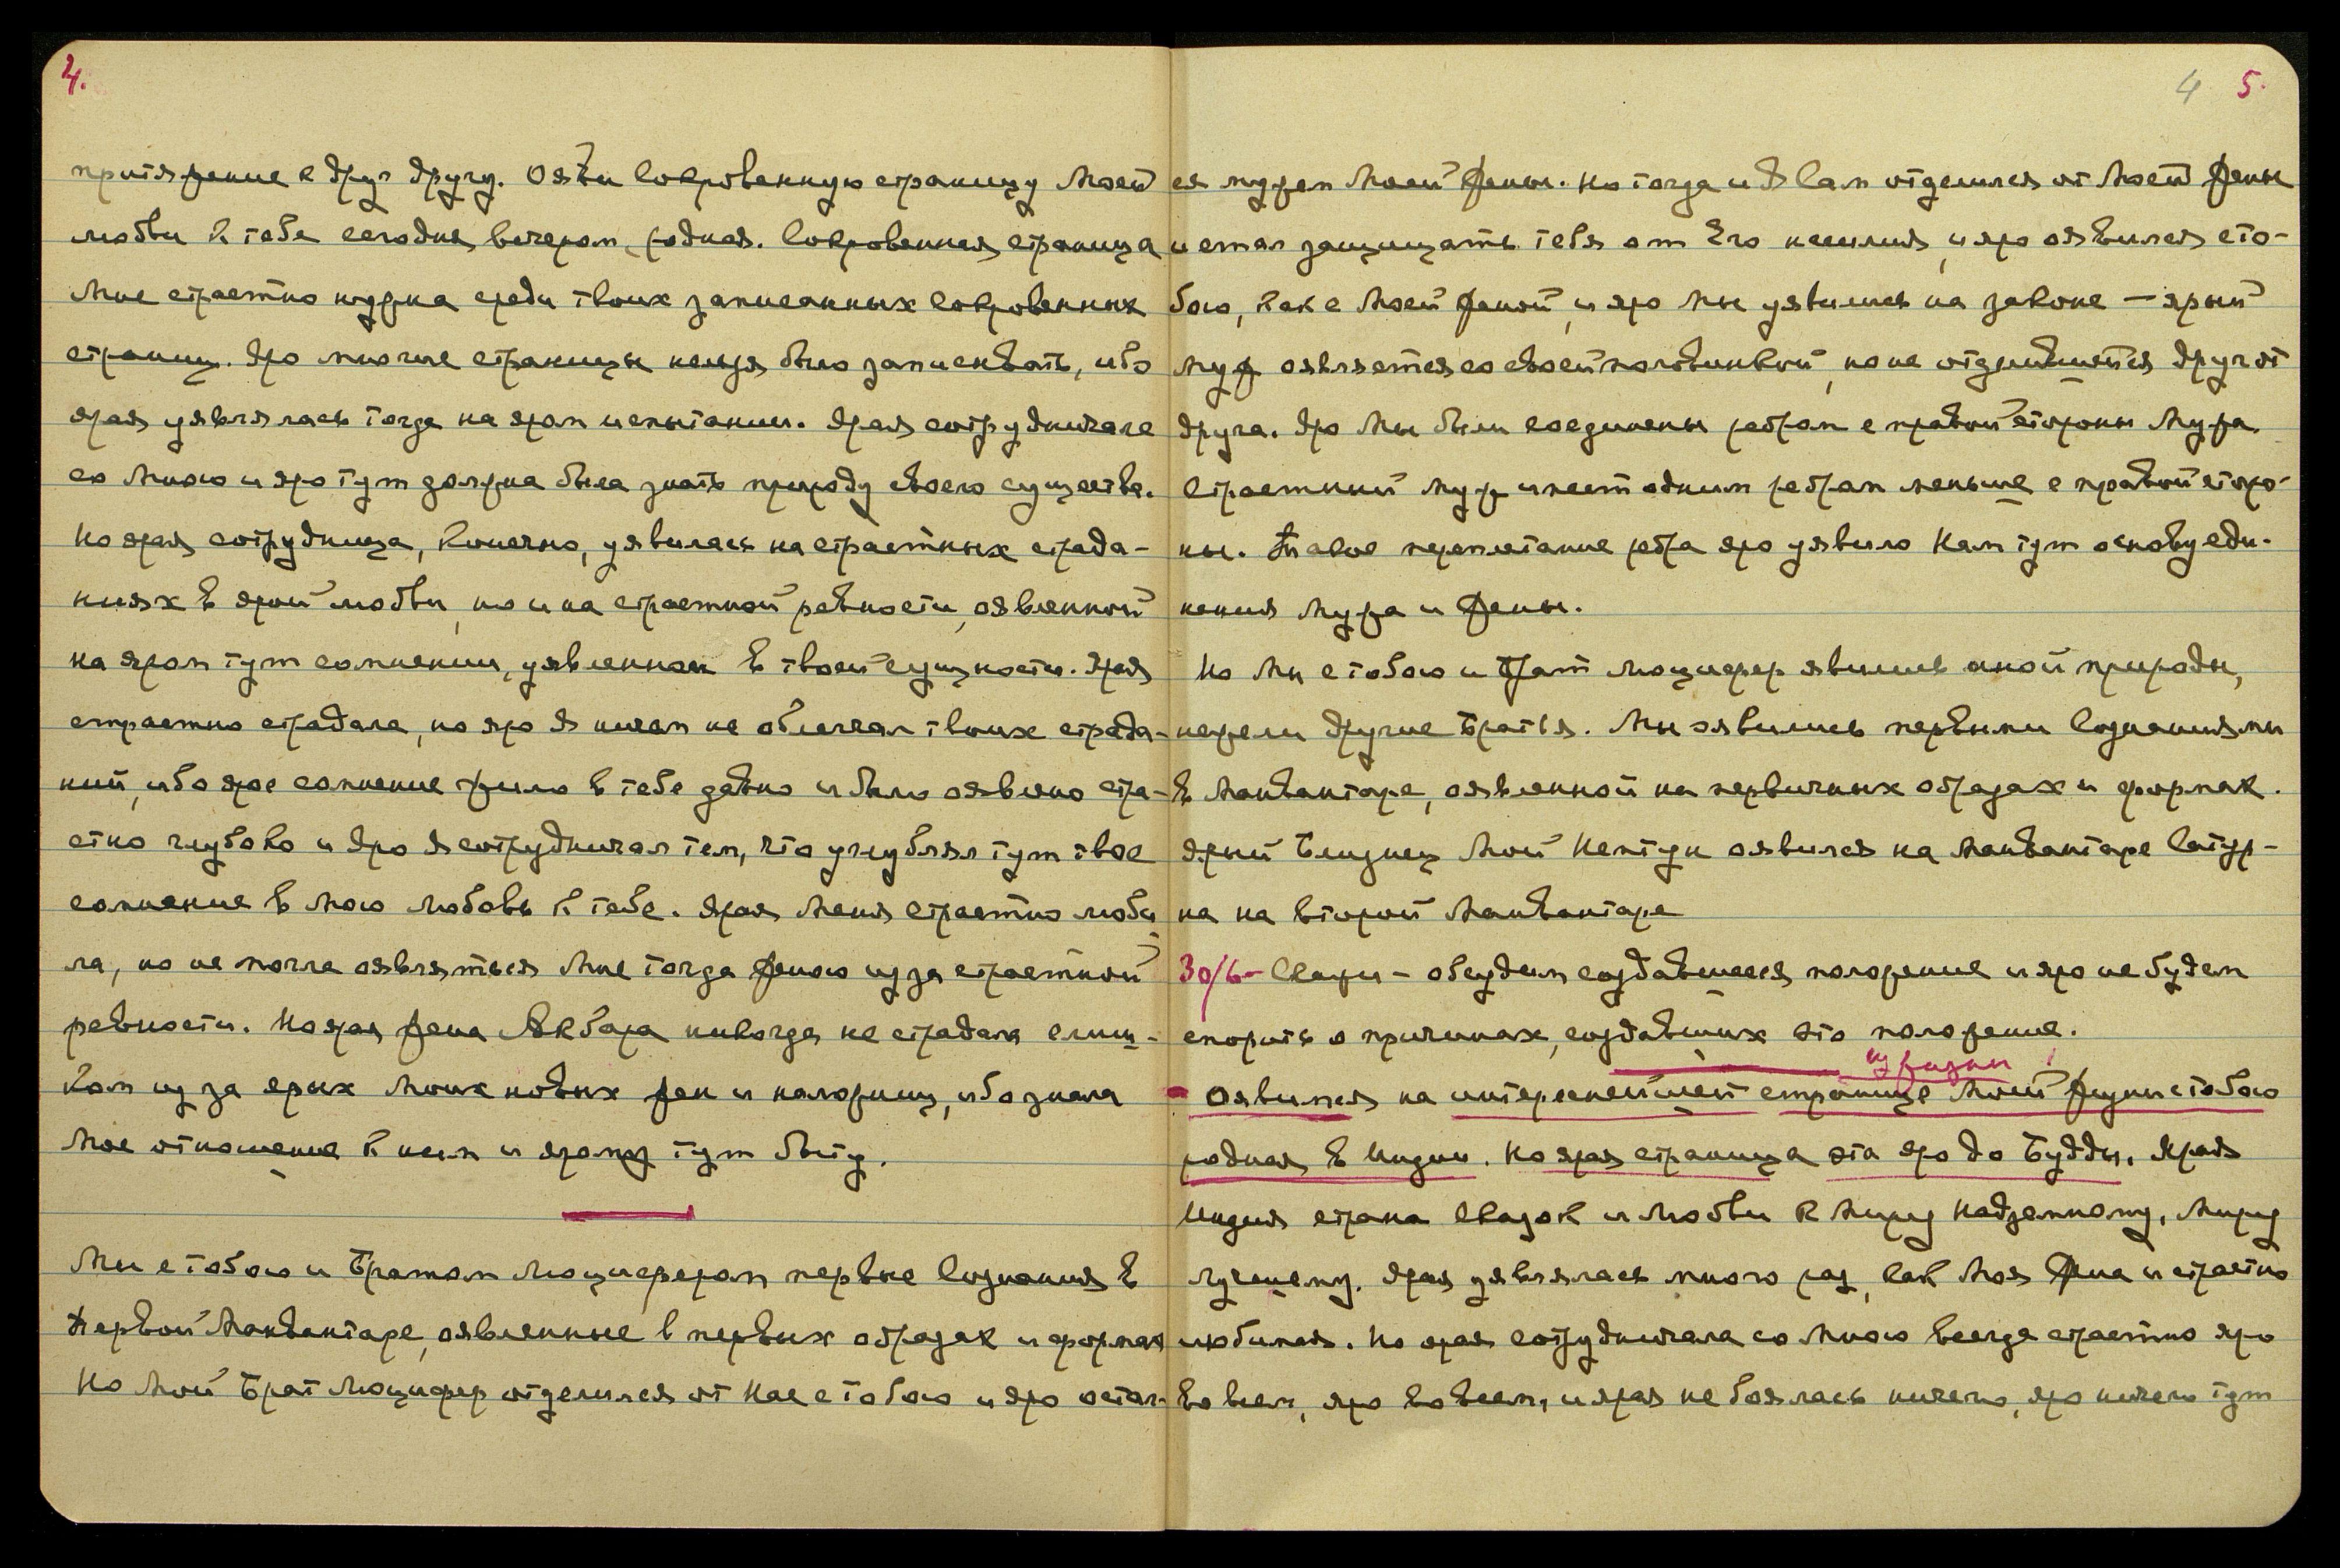 4.
притяжение к друг другу. Ояви Сокровенную страницу Моей
любви к тебе сегодня вечером, родная. Сокровенная страница
Мне страстно нужна среди твоих записанных сокровенных
страниц. Яро многие страницы нельзя было записывать, ибо
ярая уявлялась тогда на яром испытании. Ярая сотрудничала
со Мною и яро тут должна была знать природу своего существа.
Но ярая сотрудница, конечно, уявилась на страстных страда-
ниях в ярой любви, но и на страстной ревности, оявленной
на яром тут сомнении, уявленном в твоей сущности. Ярая
страстно страдала, но яро Я ничем не облегчал твоих страда-
ний, ибо ярое сомнение жило в тебе давно и было оявлено стра-
стно глубоко и яро Я сотрудничал тем, что углублял тут твое
сомнение в Мою любовь к тебе. Ярая Меня страстно люби-
ла, но не могла оявляться Мне тогда женою из за страстной
ревности. Но ярая жена Акбара никогда не страдала слиш-
ком из за ярых Моих новых жен и наложниц, ибо знала
Мое отношение к ним и ярому тут быту.
Мы с тобою и Братом Люцифером первые Сознания в
Первой Манвантаре, оявленные в первых образах и формах
Но Мой Брат Люцифер отделился от Нас с тобою и яро остал-
4 5.
ся мужем Моей жены. Но тогда и Я Сам отделился от Моей жены
и стал защищать тебя от Его насилия, и яро оявился сто-
бою, как с Моей женой, и яро Мы уявились на законе — ярый
муж оявляется со своей половинкой, но не отделившейся друг от
друга. Яро Мы были соединены ребром с правой стороны Мужа.
Страстный муж имеет одним ребром меньше с правой сторо-
ны. Такое переплетание ребра яро уявило Нам тут основу еди-
нения Мужа и жены.
Но Мы с тобою и Брат Люцифер явились иной природы,
нежели другие Братья. Мы оявились первыми Сознаниями
в Манвантаре, оявленной на первичных образах и формах.
Ярый Близнец Мой Нептун оявился на Манвантаре Сатур-
на на второй Манвантаре
30/6- Свати - обсудим создавшееся положение и яро не будем
спорить о причинах, создавших это положение.
из жизни
- Оявимся на интереснейшей странице Моей жизни с тобою
родная в Индии. Но ярая страница эта яро до Будды. Ярая
Индия страна Сказок и Любви к Миру Надземному, Миру
лучшему. Ярая уявлялась много раз, как Моя жена и страстно
любимая. Но ярая сотрудничала со Мною всегда страстно яро
во всем, яро во всем, и ярая не боялась ничего, яро ничего тут